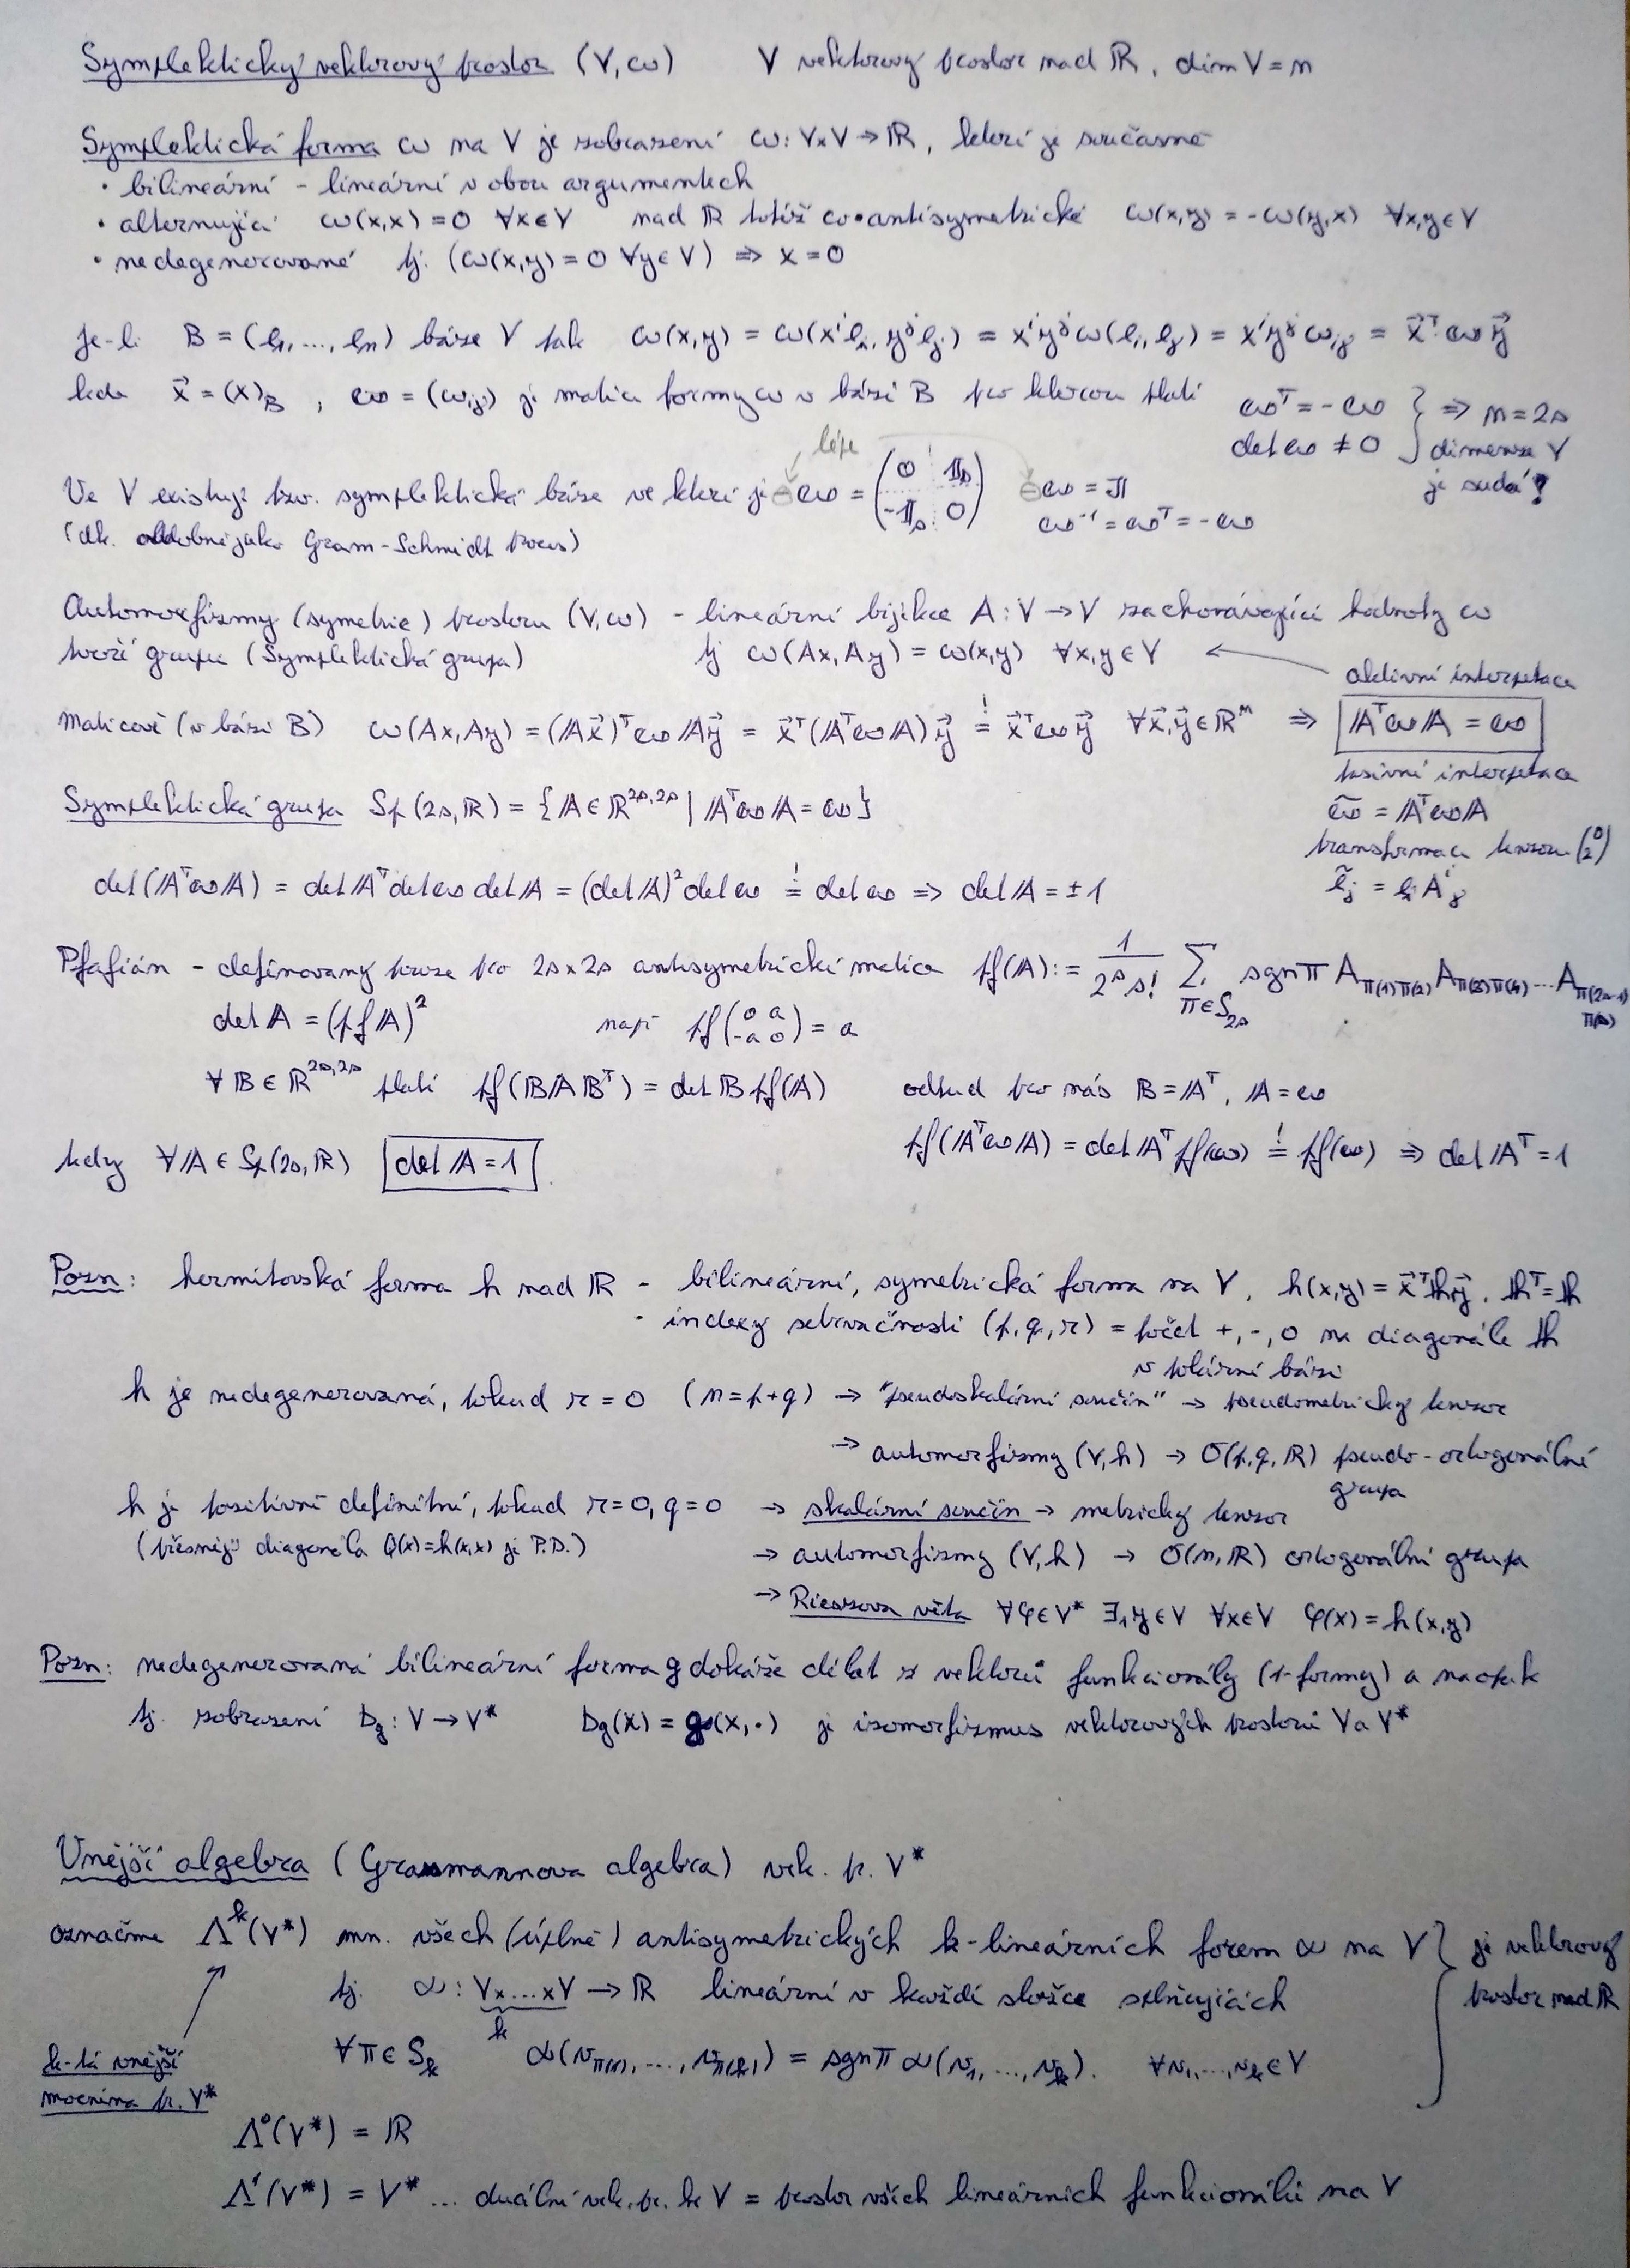 Symplektický vektorový prostor (V,ω) V vektorový prostor nad ℝ, dim V = n
Symplektická forma ω na V je zobrazení ω: V×V → ℝ, které je současně
• bilineární - lineární v obou argumentech
• alternující ω(x,x) = 0 ∀x∈V nad ℝ totéž co • antisymetrické ω(x,y) = -ω(y,x) ∀x,y∈V
• nedegenerované tj. (ω(x,y) = 0 ∀y∈V) ⇒ x = 0
Je-li B = (e₁, ..., eₙ) báze V pak ω(x,y) = ω(xⁱeᵢ, yʲeⱼ) = xⁱyʲω(eᵢ, eⱼ) = xⁱyʲωᵢⱼ = x⃗ᵀ ω y⃗
kde x⃗ = (x)_B , ω = (ωᵢⱼ) je matice formy ω v bázi B pro kterou platí ωᵀ = -ω } ⇒ n = 2s
det ω ≠ 0 dimenze V
je sudá!
lépe
Ve V existují tzv. symplektická báze ve které je ⊖ ω = (0 𝟙ₛ; -𝟙ₛ 0) ⊖ω = 𝕁
ω⁻¹ = ωᵀ = -ω
(dk. obdobně jako Gram-Schmidt proces)
Automorfizmy (symetrie) prostoru (V,ω) - lineární bijekce A: V → V zachovávající hodnoty ω
tvoří grupu (Symplektická grupa) tj ω(Ax, Ay) = ω(x,y) ∀x,y∈V ←
aktivní interpretace
Maticově (v bázi B) ω(Ax,Ay) = (𝔸x⃗)ᵀω𝔸y⃗ = x⃗ᵀ(𝔸ᵀω𝔸)y⃗ =! x⃗ᵀωy⃗ ∀x⃗,y⃗∈ℝⁿ ⇒ 𝔸ᵀω𝔸 = ω
pasivní interpretace
Symplektická grupa Sp(2s,ℝ) = {𝔸∈ℝ²ˢ,²ˢ | 𝔸ᵀω𝔸 = ω}
ω̃ = 𝔸ᵀω𝔸
transformace tenzoru (0 2)
ẽⱼ = eᵢAⁱⱼ
det(𝔸ᵀω𝔸) = det𝔸ᵀ detω det𝔸 = (det𝔸)² detω =! detω ⇒ det𝔸 = ±1
Pfafián - definovaný pouze pro 2s×2s antisymetrické matice pf(𝔸) := 1/(2ˢ s!) ∑_{π∈S₂ₛ} sgnπ A_{π(1)π(2)} A_{π(3)π(4)} ... A_{π(2s-1)π(2s)}
det𝔸 = (pf𝔸)² např pf(0 a; -a 0) = a
∀𝔹∈ℝ²ˢ,²ˢ platí pf(𝔹𝔸𝔹ᵀ) = det𝔹 pf(𝔸) odtud pro nás 𝔹 = 𝔸ᵀ, 𝔸 = ω
pf(𝔸ᵀω𝔸) = det𝔸ᵀ pf(ω) =! pf(ω) ⇒ det𝔸ᵀ = 1
tedy ∀𝔸∈Sp(2s,ℝ) det𝔸 = 1
Pozn: hermitovská forma h nad ℝ - bilineární, symetrická forma na V, h(x,y) = x⃗ᵀ𝕙y⃗, 𝕙ᵀ=𝕙
• indexy setrvačnosti (p,q,r) = počet +,-,0 na diagonále 𝕙
v polární bázi
h je nedegenerovaná, pokud r = 0 (n = p+q) → "pseudoskalární součin" → pseudometrický tenzor
→ automorfizmy (V,h) → O(p,q,ℝ) pseudo-ortogonální
grupa
h je pozitivně definitní, pokud r=0, q=0 → skalární součin → metrický tenzor
(přesněji diagonála Q(x)=h(x,x) je P.D.) → automorfizmy (V,h) → O(n,ℝ) ortogonální grupa
→ Rieszova věta ∀φ∈V* ∃₁y∈V ∀x∈V φ(x) = h(x,y)
Pozn: nedegenerovaná bilineární forma g dokáže dělat z vektorů funkcionály (1-formy) a naopak
tj. zobrazení ♭g: V → V* ♭g(x) = g(x,·) je izomorfizmus vektorových prostorů V a V*
Vnější algebra (Grassmannova algebra) vek. p. V*
označme Λᵏ(V*) mn. všech (úplně) antisymetrických k-lineárních forem α na V } je vektorový
prostor nad ℝ
tj. α: V×...×V → ℝ lineární v každé složce splňujících
k
k-tá vnější
mocnina p. V*
∀π∈Sₖ α(v_{π(1)}, ..., v_{π(k)}) = sgnπ α(v₁, ..., vₖ). ∀v₁,...,vₖ∈V
Λ⁰(V*) = ℝ
Λ¹(V*) = V* ... duální vek. pr. k V = prostor všech lineárních funkcionálů na V